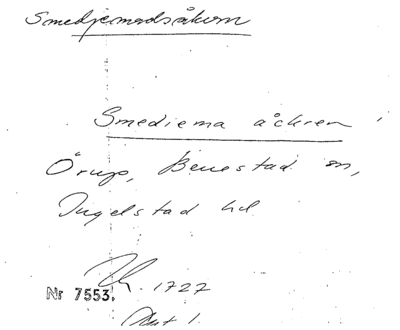 Smedjemadsåkern
Smediema åckren
Örup, Benestad sn,
Ingelstad hd
1727
Nr 7553.
Akt 1.